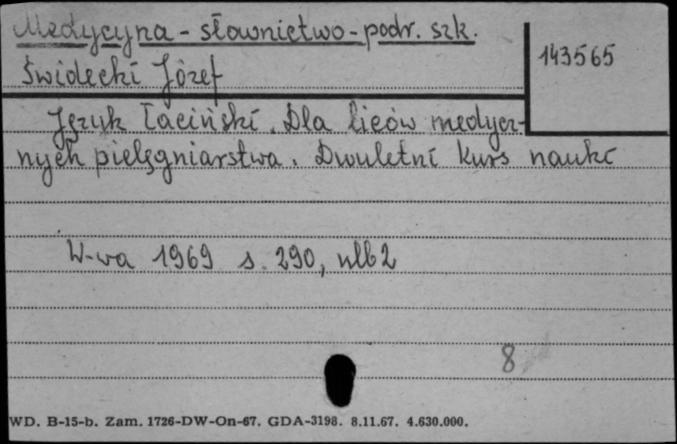 Medycyna - słownictwo - podr. szk.
143565
Świdecki Józef
Język łaciński. Dla liceów medycz-
nych pielęgniarstwa. Dwuletni kurs nauki
W-wa 1969 s. 290, nlb 2
8
WD. B-15-b. Zam. 1726-DW-On-67. GDA-3198. 8.11.67. 4.630.000.